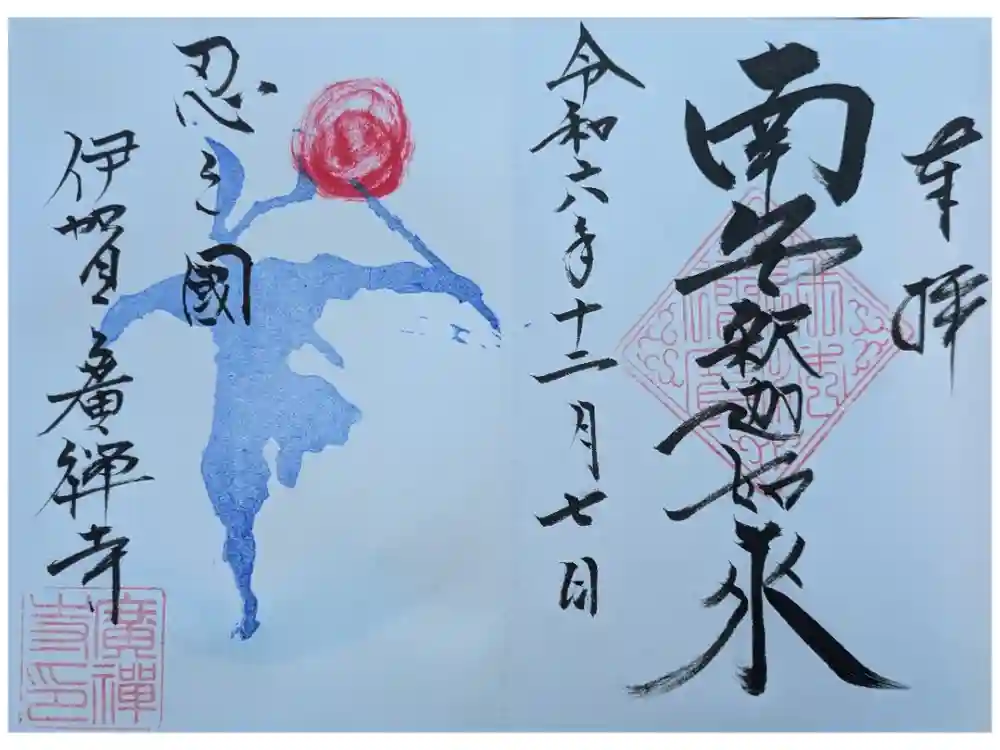 奉拝
南無釈迦如来
令和六年十二月七日
忍之國
伊賀廣禅寺
廣禅寺印